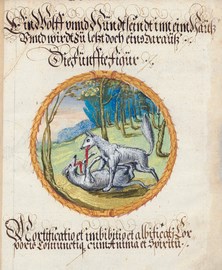 Ein Wolff vnnd Hundt seindt im eim Hauß
Vnnd wirdt zu letz doch eins daraus
Die fünffte figur
Mortificatio et imbibitio et albificati Cor
poris Coniunctiq cum Anima et Spiritu